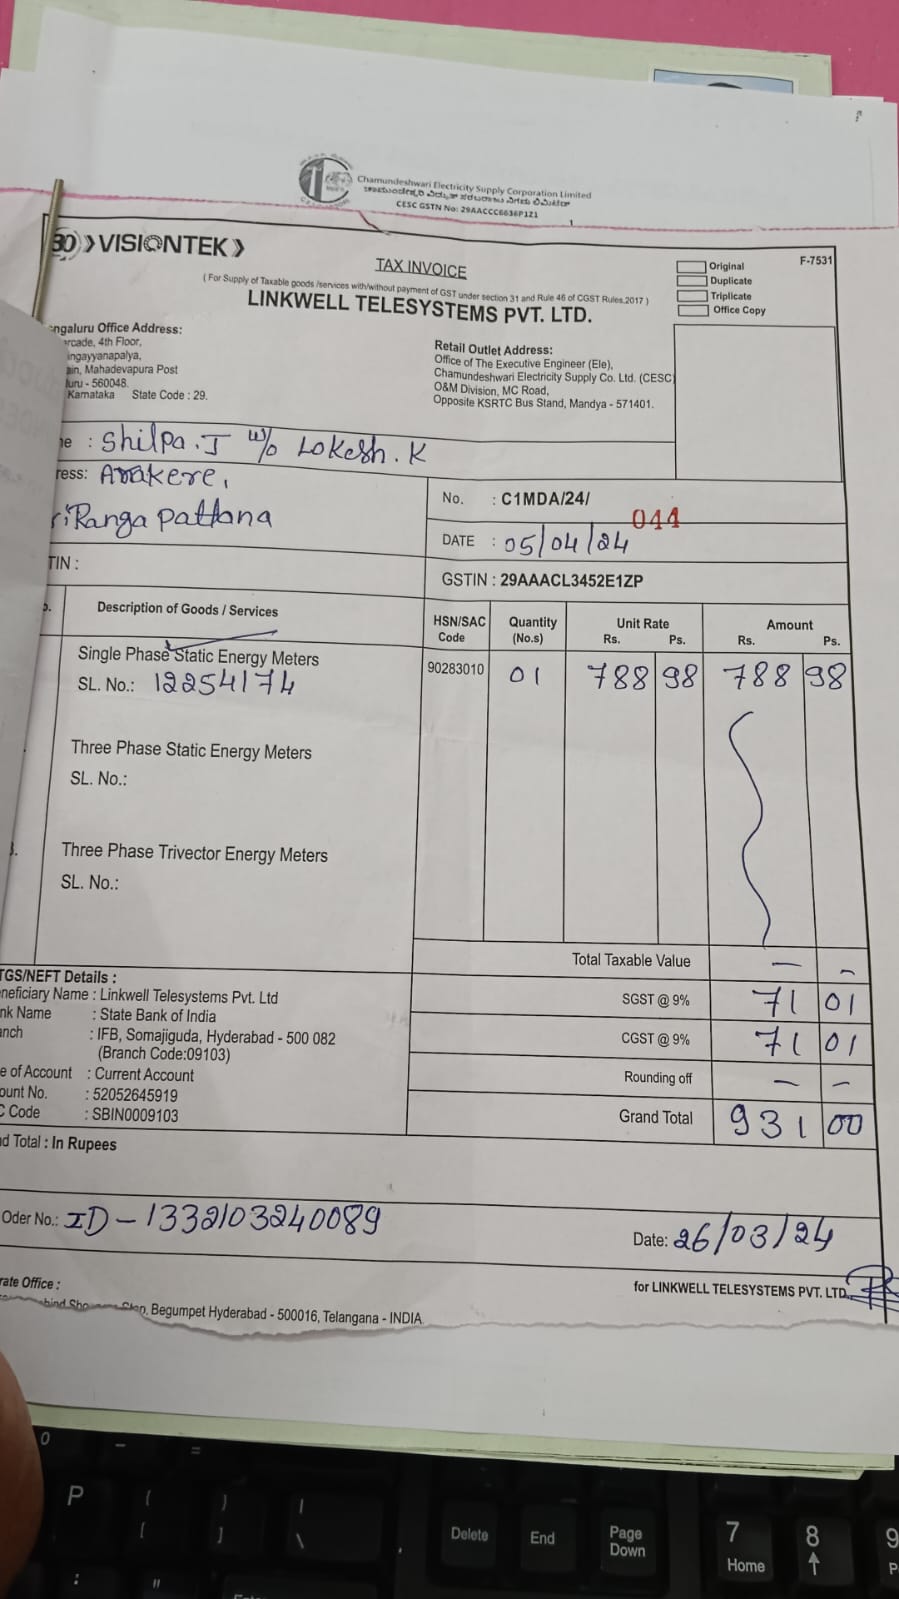 Chamundeshwari Electricity Supply Corporation Limited
ಚಾಮುಂಡೇಶ್ವರಿ ವಿದ್ಯುತ್ ಸರಬರಾಜು ನಿಗಮ ನಿಯಮಿತ
CESC GSTN No: 29AACCC6636P1Z1
30 VISIONTEK
TAX INVOICE
( For Supply of Taxable goods /services with/without payment of GST under section 31 and Rule 46 of CGST Rules,2017 )
LINKWELL TELESYSTEMS PVT. LTD.
Original
Duplicate
Triplicate
Office Copy
F-7531
ngaluru Office Address:
rcade, 4th Floor,
ngayyanapalya,
ain, Mahadevapura Post
luru - 560048.
Karnataka State Code : 29.
Retail Outlet Address:
Office of The Executive Engineer (Ele),
Chamundeshwari Electricity Supply Co. Ltd. (CESC)
O&M Division, MC Road,
Opposite KSRTC Bus Stand, Mandya - 571401.
ne : Shilpa.J w/o Lokesh.K
ress: Arakere,
riRanga pattana
No. : C1MDA/24/ 044
DATE : 05/04/24
TIN :
GSTIN : 29AAACL3452E1ZP
Description of Goods / Services HSN/SAC Code Quantity (No.s) Unit Rate Rs. Ps. Amount Rs. Ps.
Single Phase Static Energy Meters 90283010 01 788 98 788 98
SL. No.: 12254174
Three Phase Static Energy Meters
SL. No.:
Three Phase Trivector Energy Meters
SL. No.:
Total Taxable Value — -
SGST @ 9% 71 01
CGST @ 9% 71 01
Rounding off — -
Grand Total 931 00
TGS/NEFT Details :
neficiary Name : Linkwell Telesystems Pvt. Ltd
nk Name : State Bank of India
anch : IFB, Somajiguda, Hyderabad - 500 082
(Branch Code:09103)
e of Account : Current Account
ount No. : 52052645919
C Code : SBIN0009103
nd Total : In Rupees
Oder No.: ID-1332103240089
Date: 26/03/24
rate Office :
for LINKWELL TELESYSTEMS PVT. LTD.
Begumpet Hyderabad - 500016, Telangana - INDIA
0 - =
P { [ } ] | \
Delete End Page Down 7 Home 8 9
: "